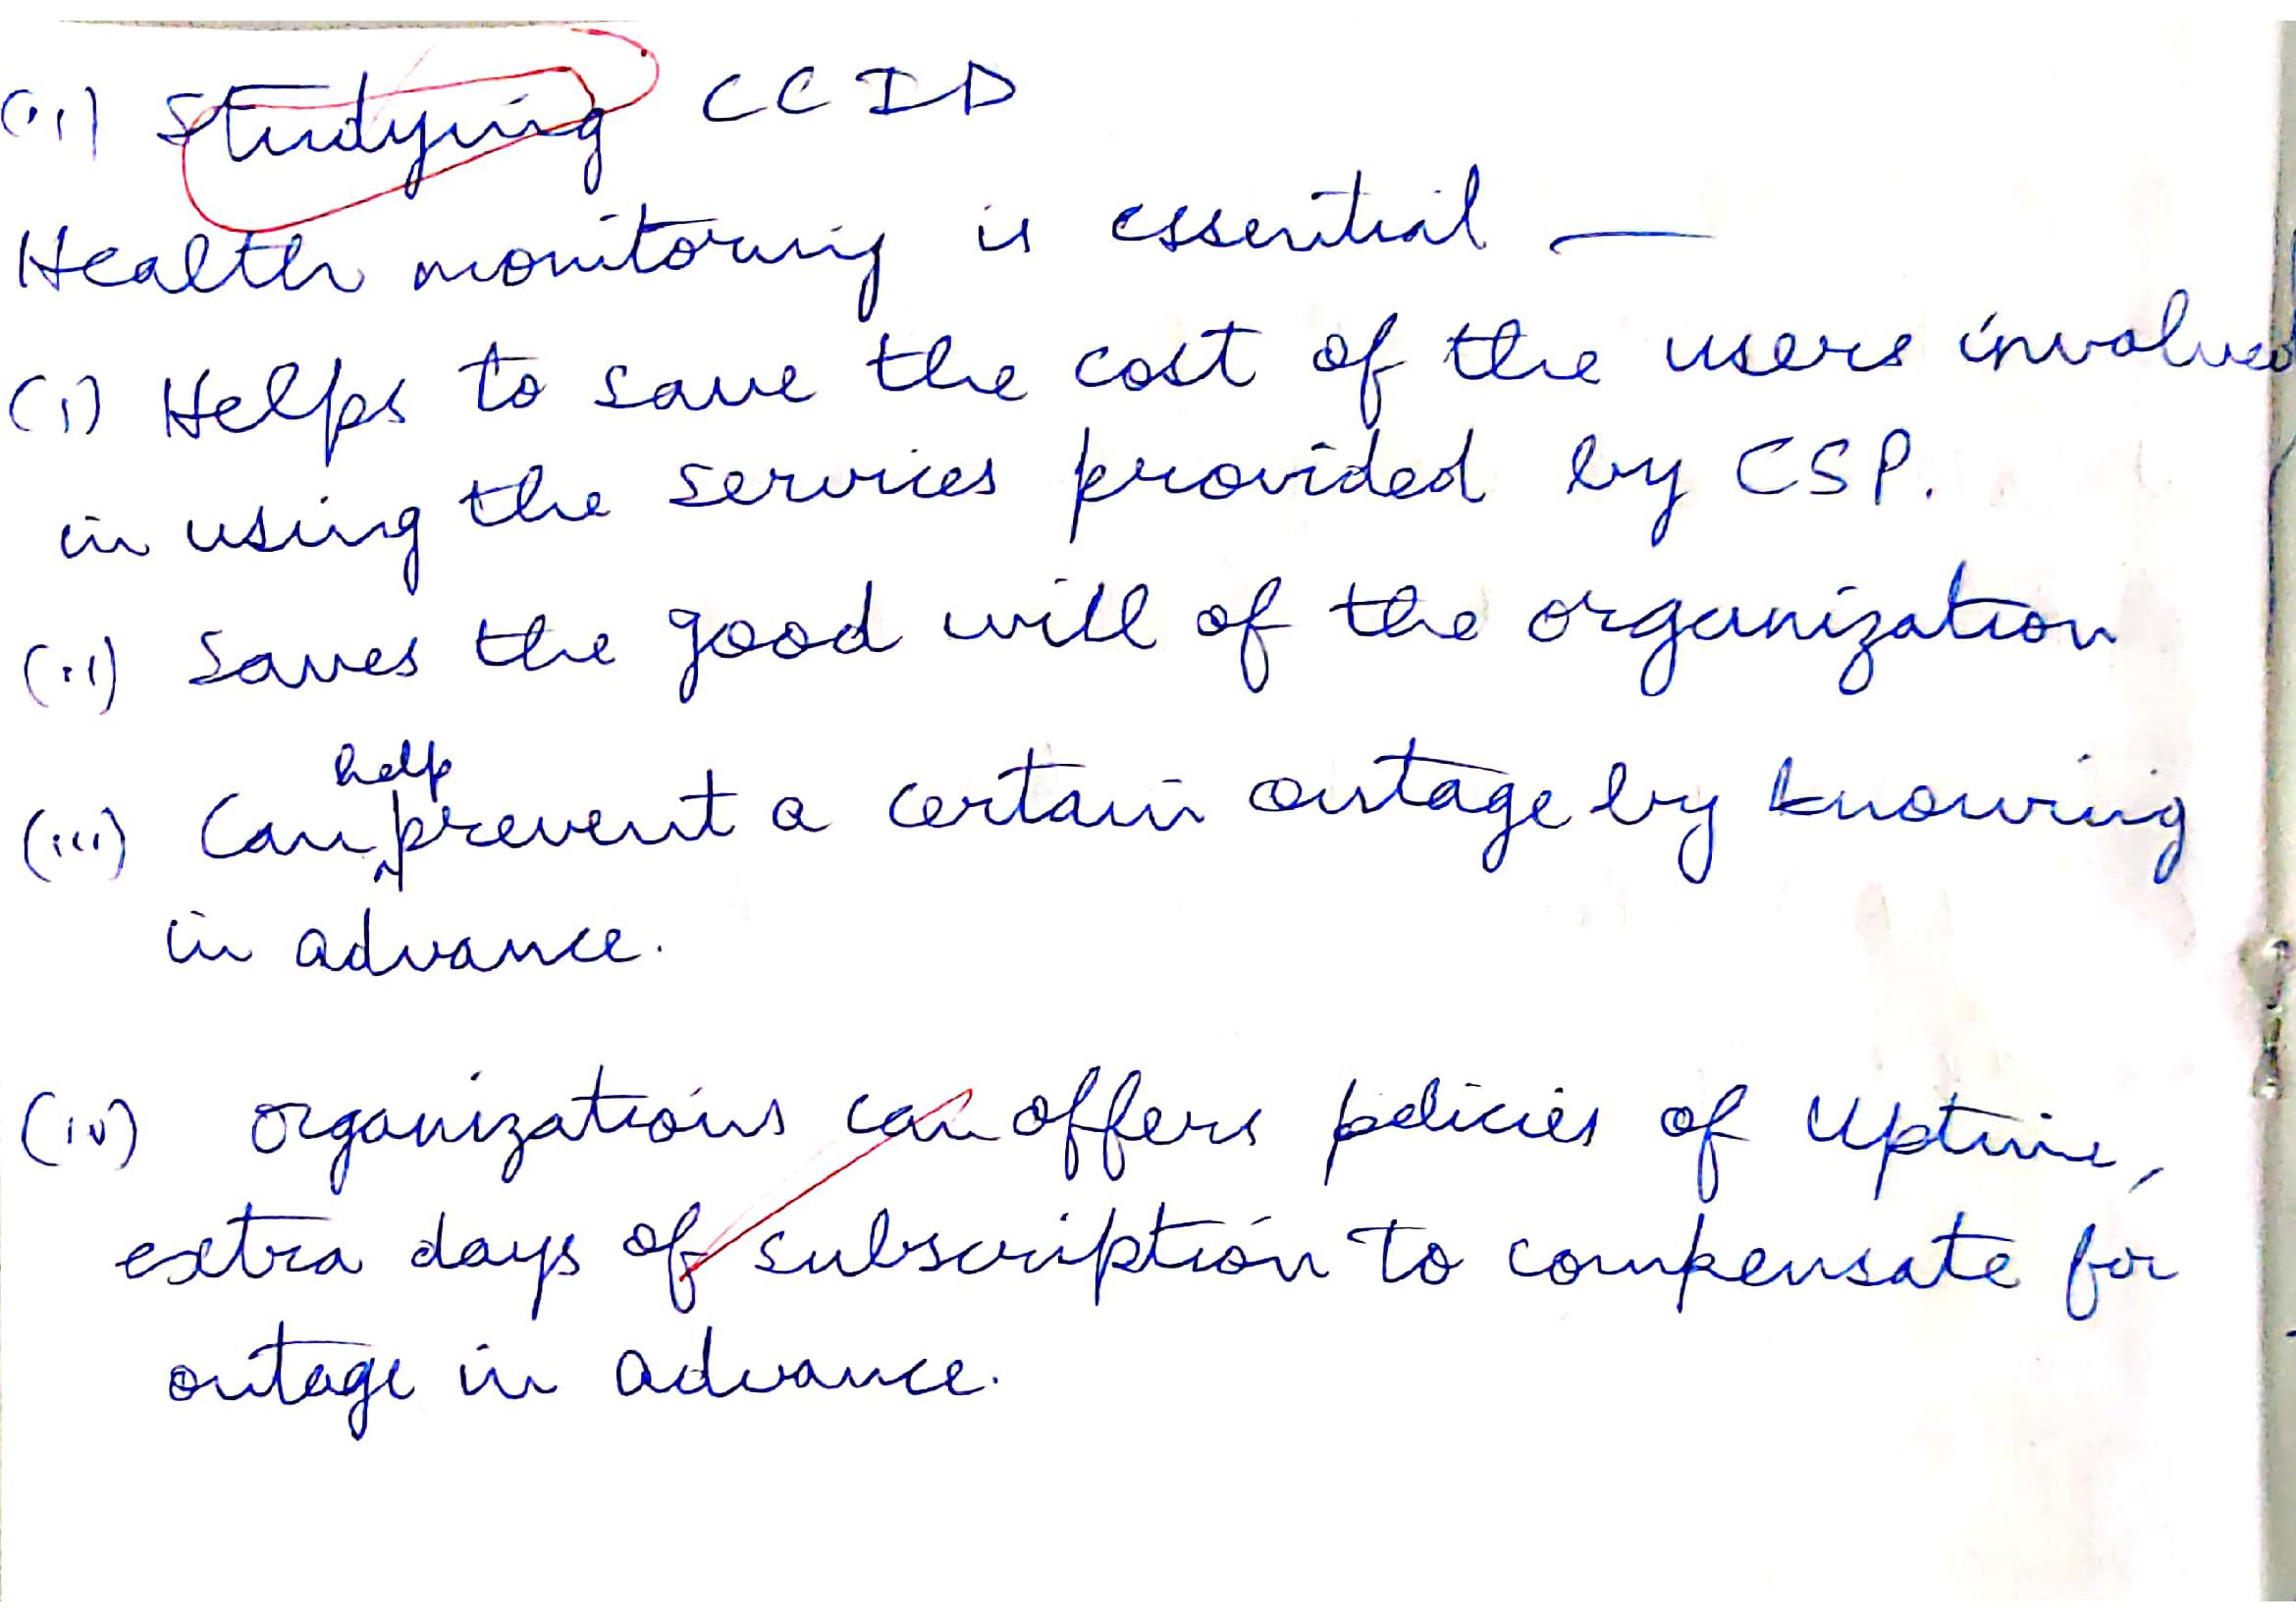 (ii) Studying CCID
Health monitoring is essential —
(i) Helps to save the cost of the users involved
in using the services provided by CSP.
(ii) Saves the good will of the organization
(iii) Can help prevent a certain outage by knowing
in advance.
(iv) Organizations can offers policies of Uptime,
extra days of subscription to compensate for
outage in advance.